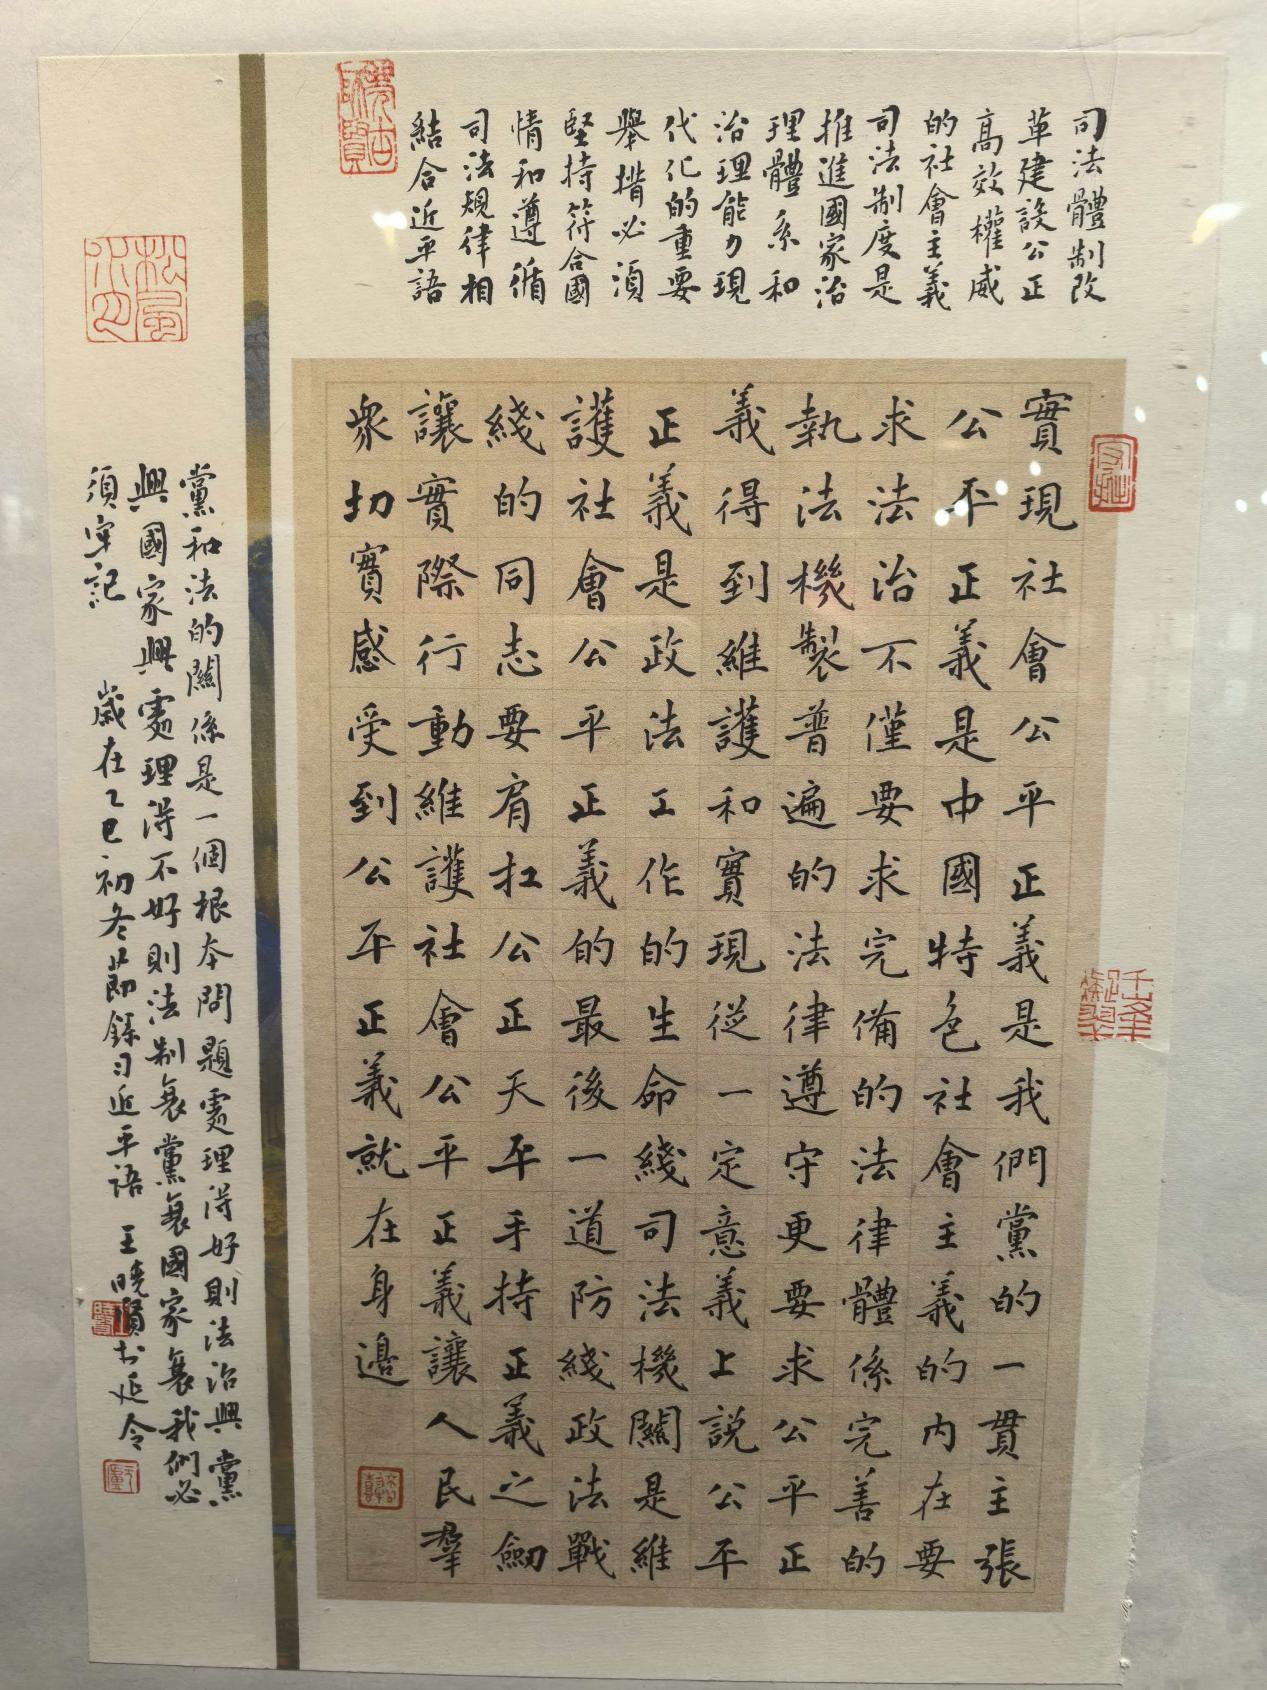 司法體制改
革建設公正
高效權威
的社會主義
司法制度是
推進國家治
理體系和
治理能力現
代化的重要
舉措必須
堅持符合國
情和遵循
司法規律相
結合近平語
實現社會公平正義是我們黨的一貫主張
公平正義是中國特色社會主義的内在要
求法治不僅要求完備的法律體係完善的
執法機製普遍的法律遵守更要求公平正
義得到維護和實現從一定意義上説公平
正義是政法工作的生命綫司法機關是維
護社會公平正義的最後一道防綫政法戰
綫的同志要肩扛公正天平手持正義之劍
讓實際行動維護社會公平正義讓人民羣
衆切實感受到公平正義就在身邊
黨和法的關係是一個根本問題處理得好則法治興黨
興國家興處理得不好則法制衰黨衰國家衰我們必
須牢記 歲在乙巳初冬節錄習近平語 王曉賢書延令